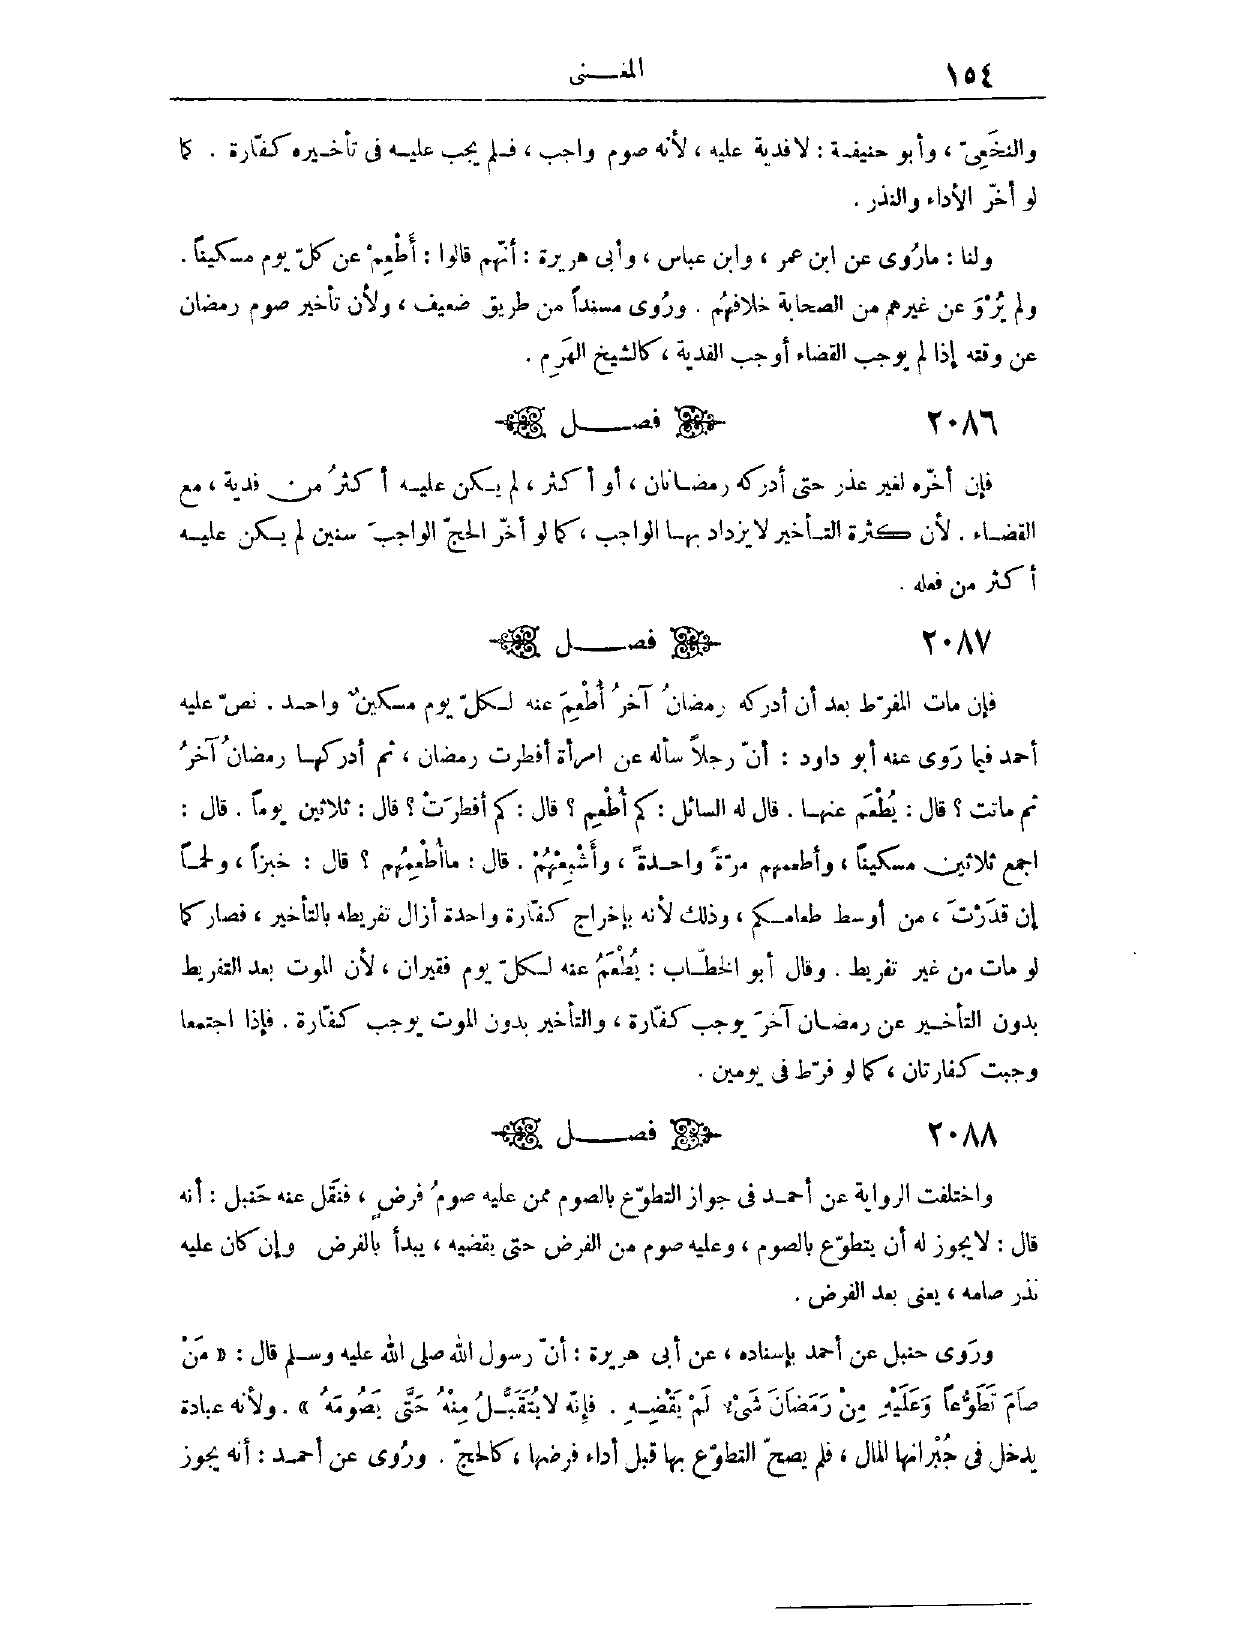 ١٥٤
المغنى
والنخَعِىّ ، وأبو حنيفة : لا فدية عليه ، لأنه صوم واجب ، فلم يجب عليه فى تأخيره كفّارة . كما
لو أخّر الأداء والنذر .
ولنا : مارُوى عن ابن عمر ، وابن عباس ، وأبى هريرة : أنّهم قالوا : أَطْعِمْ عن كلّ يوم مسكيناً .
ولم يُرْوَ عن غيرهم من الصحابة خلافهُم . ورُوى مسنداً من طريق ضعيف ، ولأن تأخير صوم رمضان
عن وقته إذا لم يوجب القضاء أوجب الفدية ، كالشيخ الهَرِم .
٢٠٨٦ فصل
فإن أخّره لغير عذر حتى أدركه رمضانان ، أو أكثر ، لم يكن عليه أكثرُ من فدية ، مع
القضاء . لأن كثرة التأخير لا يزداد بها الواجب ، كما لو أخّر الحجّ الواجبَ سنين لم يكن عليه
أكثر من فعله .
٢٠٨٧ فصل
فإن مات المفرّط بعد أن أدركه رمضانُ آخرُ أُطْعِمَ عنه لكلّ يوم مسكينٌ واحد . نصّ عليه
أحمد فيما رَوى عنه أبو داود : أنّ رجلاً سأله عن امرأة أفطرت رمضان ، ثم أدركها رمضانُ آخرُ
ثم ماتت ؟ قال : يُطْعَم عنها . قال له السائل : كم أُطْعِم ؟ قال : كم أفطرَتْ ؟ قال : ثلاثين يوماً . قال :
اجمع ثلاثين مسكيناً ، وأطعمهم مرّةً واحدةً ، وأَشْبِعْهُمْ . قال : ماأُطْعِمُهم ؟ قال : خبزاً ، ولحماً
إن قدَرْتَ ، من أوسط طعامكم ، وذلك لأنه بإخراج كفّارة واحدة أزال تفريطه بالتأخير ، فصار كما
لو مات من غير تفريط . وقال أبو الخطّاب : يُطْعَمُ عنه لكلّ يوم فقيران ، لأن الموت بعد التفريط
بدون التأخير عن رمضان آخرَ يوجب كفّارة ، والتأخير بدون الموت يوجب كفّارة . فإذا اجتمعا
وجبت كفارتان ، كما لو فرّط فى يومين .
٢٠٨٨ فصل
واختلفت الرواية عن أحمد فى جواز التطوّع بالصوم ممن عليه صومُ فرضٍ ، فنقَل عنه حَنبل : أنه
قال : لا يجوز له أن يتطوّع بالصوم ، وعليه صوم من الفرض حتى يقضيه ، يبدأ بالفرض وإن كان عليه
نذر صامه ، يعنى بعد الفرض .
ورَوى حنبل عن أحمد بإسناده ، عن أبى هريرة : أنّ رسول الله صلى الله عليه وسلم قال : « مَنْ
صَامَ تَطَوُّعاً وَعَلَيْهِ مِنْ رَمَضَانَ شَىْءٌ لَمْ يَقْضِهِ . فإِنّه لا يُتَقَبَّلُ مِنْهُ حَتَّى يَصُومَهُ » . ولأنه عبادة
يدخل فى جُبْرانها المال ، فلم يصحّ التطوّع بها قبل أداء فرضها ، كالحجّ . ورُوى عن أحمد : أنه يجوز